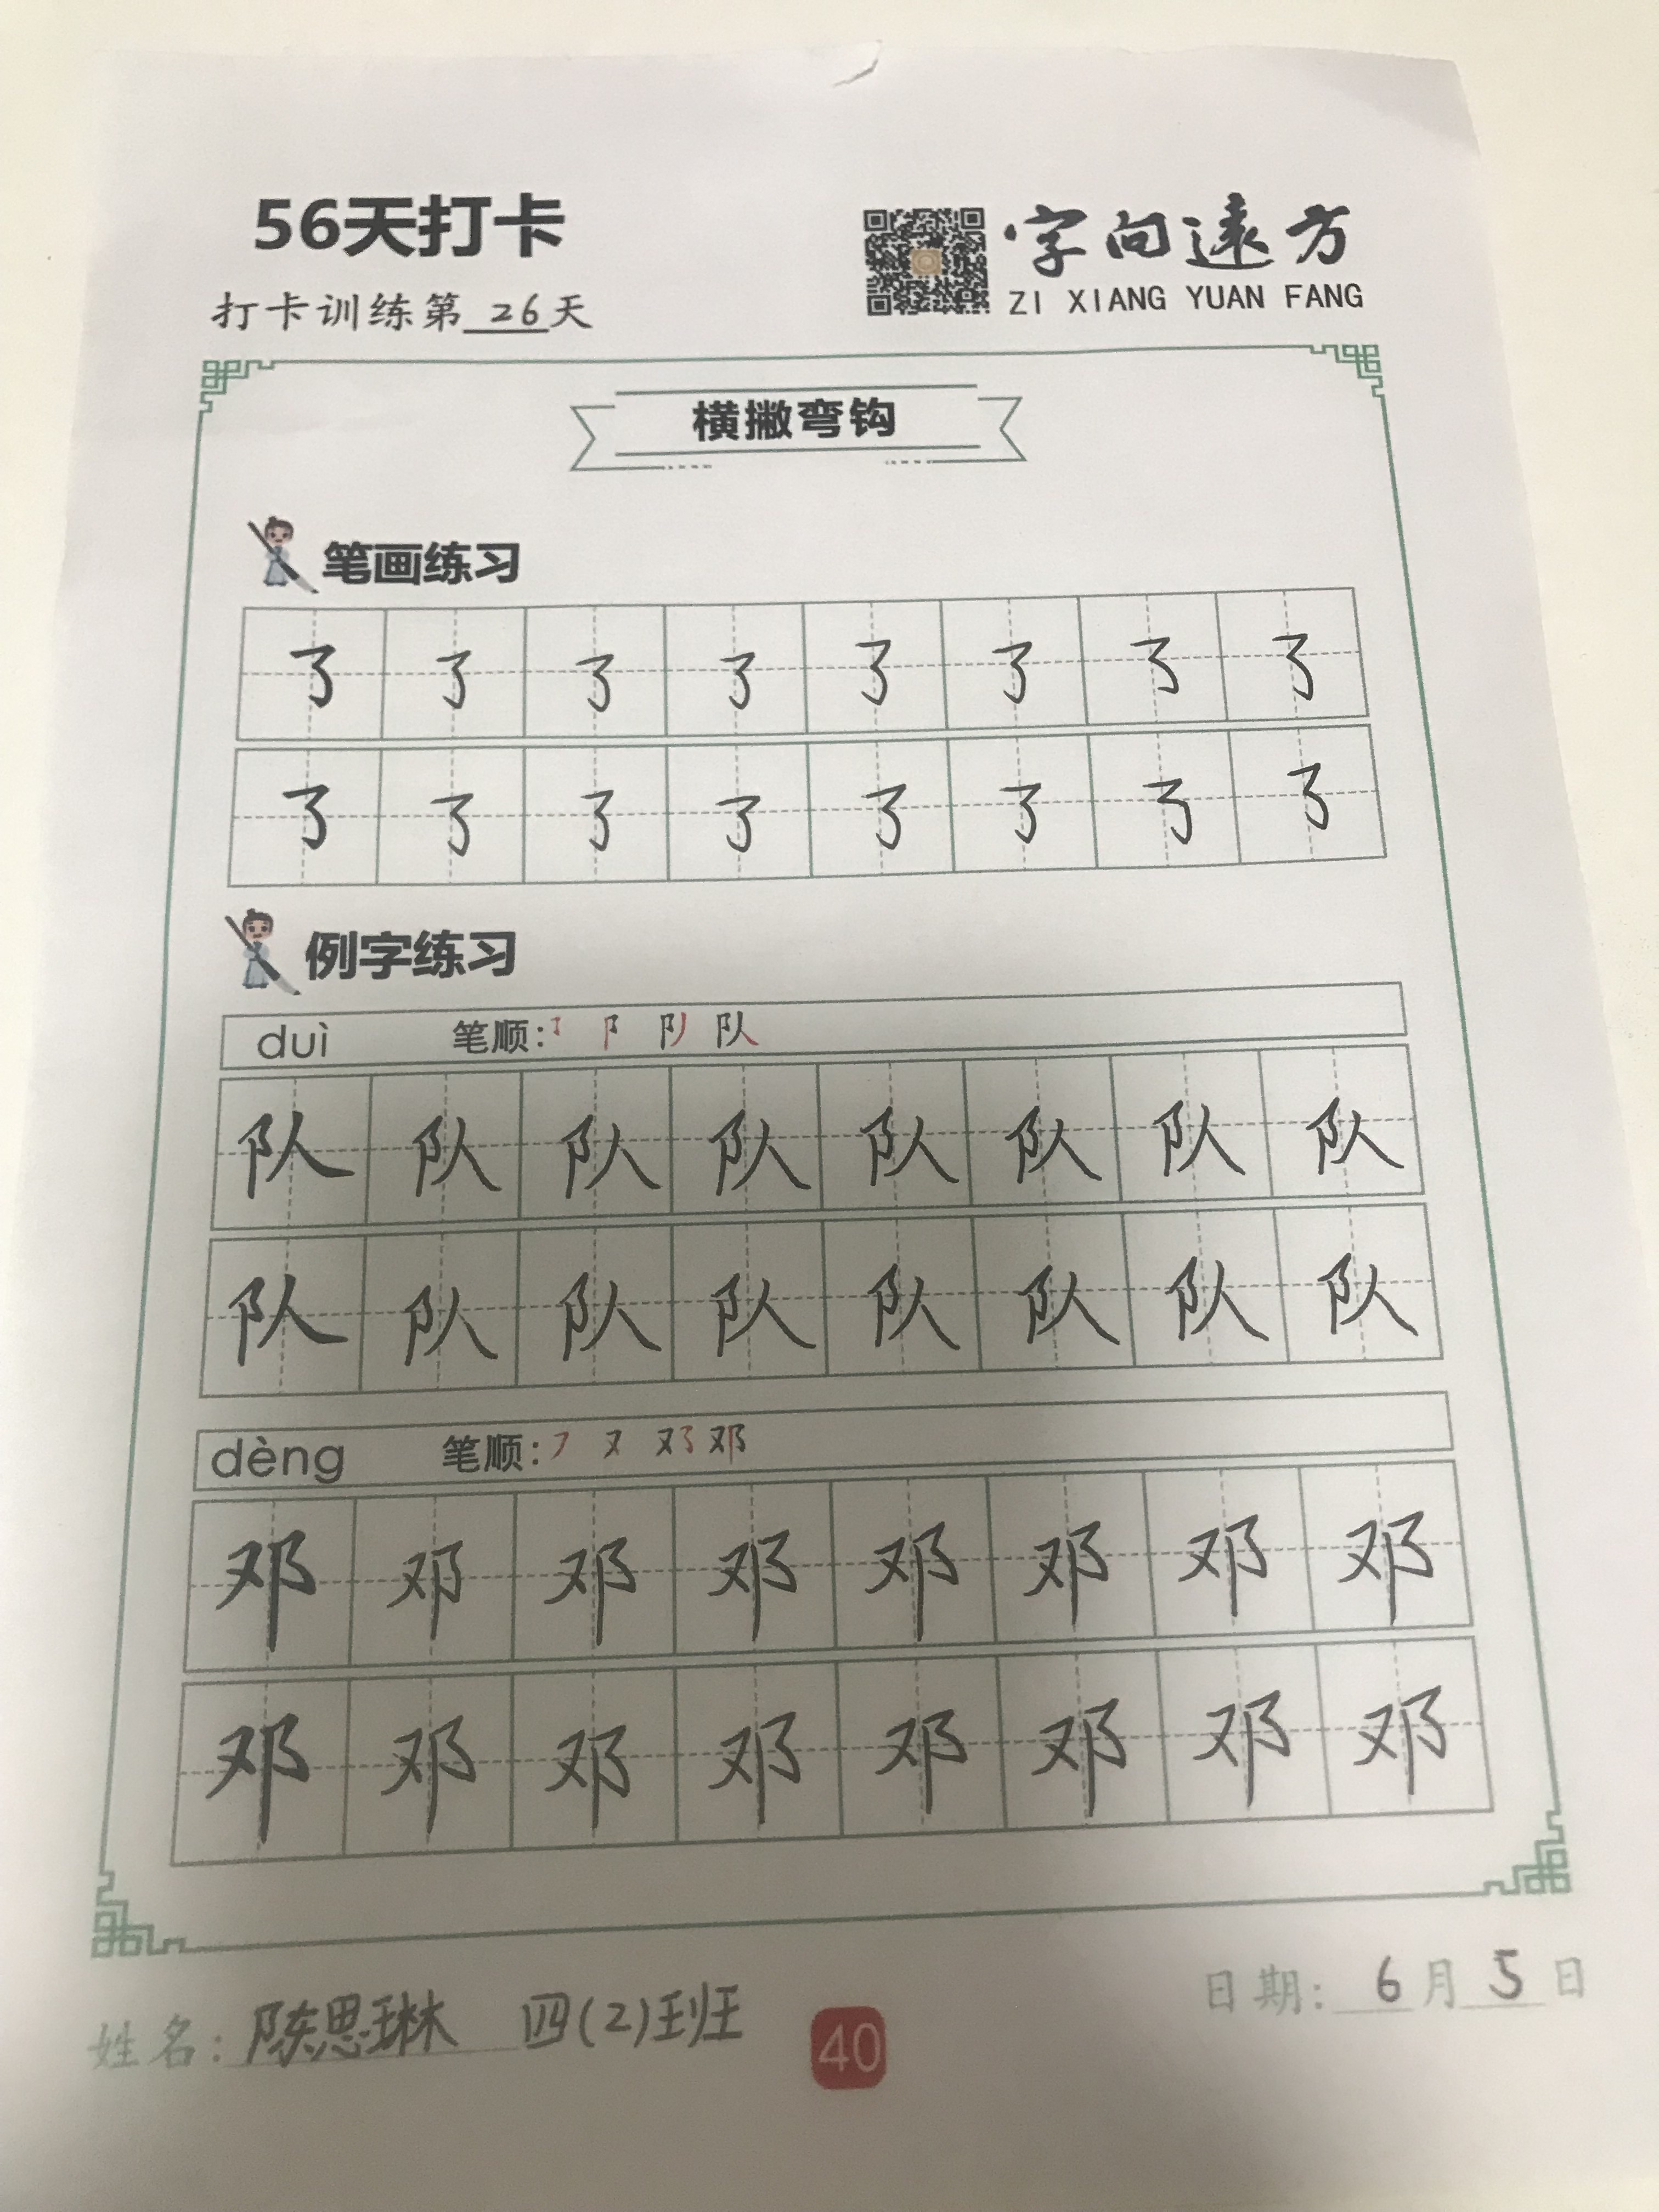 56天打卡
打卡训练第 26 天
字向远方
ZI XIANG YUAN FANG
横撇弯钩
笔画练习
㇌ ㇌ ㇌ ㇌ ㇌ ㇌ ㇌ ㇌
㇌ ㇌ ㇌ ㇌ ㇌ ㇌ ㇌ ㇌
例字练习
duì 笔顺: ㇌ 阝 队
队 队 队 队 队 队 队 队
队 队 队 队 队 队 队 队
dèng 笔顺: ㇇ 又 邓
邓 邓 邓 邓 邓 邓 邓 邓
邓 邓 邓 邓 邓 邓 邓 邓
姓名: 陈思琳 四(2)班
40
日期: 6 月 5 日